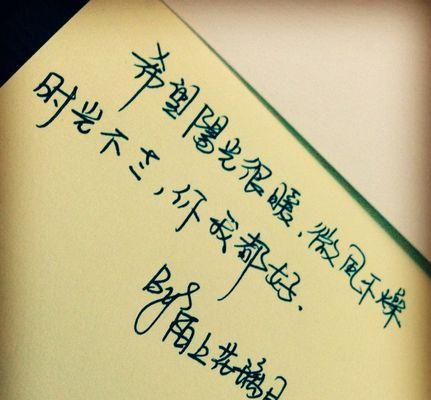 希望陽光很暖、微风不燥
时光不老，你我都好.
By 陌上花